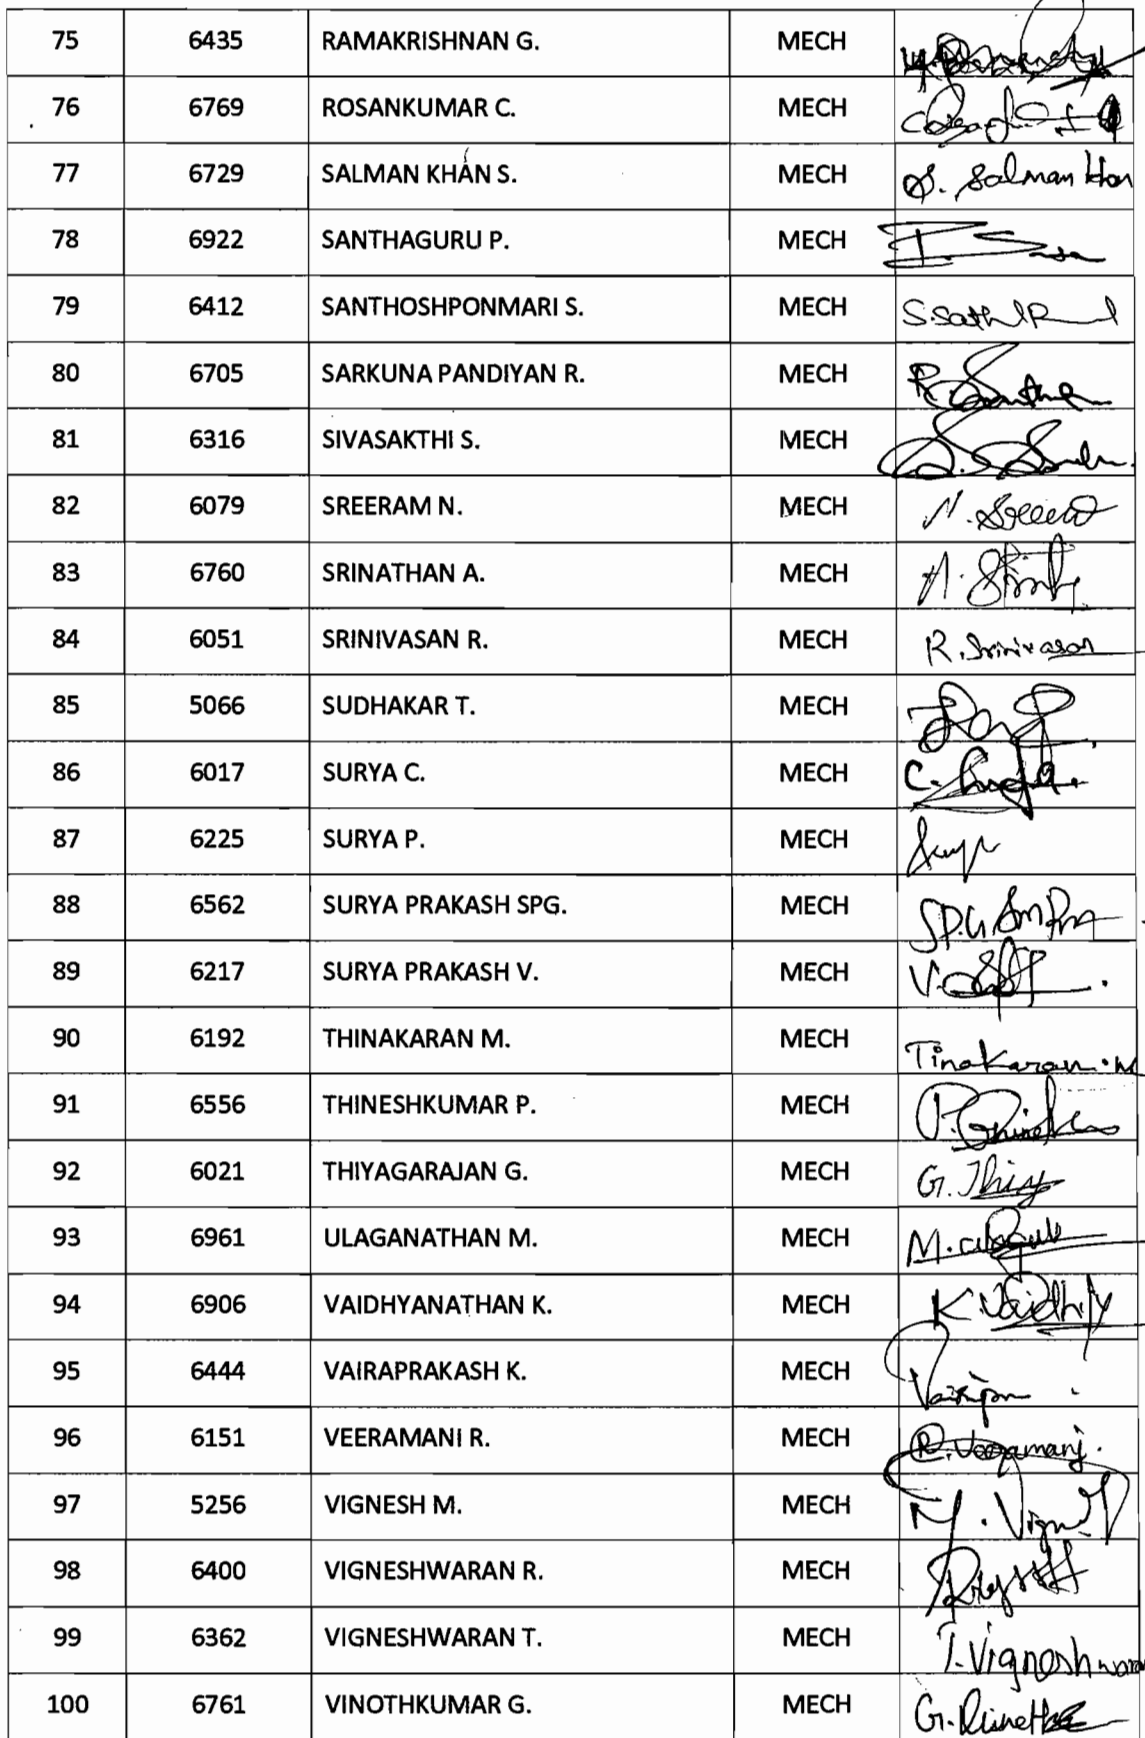 75 6435 RAMAKRISHNAN G. MECH
76 6769 ROSANKUMAR C. MECH
77 6729 SALMAN KHAN S. MECH S. Salman
78 6922 SANTHAGURU P. MECH
79 6412 SANTHOSHPONMARI S. MECH
80 6705 SARKUNA PANDIYAN R. MECH
81 6316 SIVASAKTHI S. MECH
82 6079 SREERAM N. MECH
83 6760 SRINATHAN A. MECH
84 6051 SRINIVASAN R. MECH R. Srinivasan
85 5066 SUDHAKAR T. MECH
86 6017 SURYA C. MECH
87 6225 SURYA P. MECH
88 6562 SURYA PRAKASH SPG. MECH
89 6217 SURYA PRAKASH V. MECH
90 6192 THINAKARAN M. MECH Tinakaran.M
91 6556 THINESHKUMAR P. MECH
92 6021 THIYAGARAJAN G. MECH G. Thiy
93 6961 ULAGANATHAN M. MECH
94 6906 VAIDHYANATHAN K. MECH K. Vaidhy
95 6444 VAIRAPRAKASH K. MECH
96 6151 VEERAMANI R. MECH R. Veeramani.
97 5256 VIGNESH M. MECH
98 6400 VIGNESHWARAN R. MECH
99 6362 VIGNESHWARAN T. MECH T. Vigneshwaran
100 6761 VINOTHKUMAR G. MECH